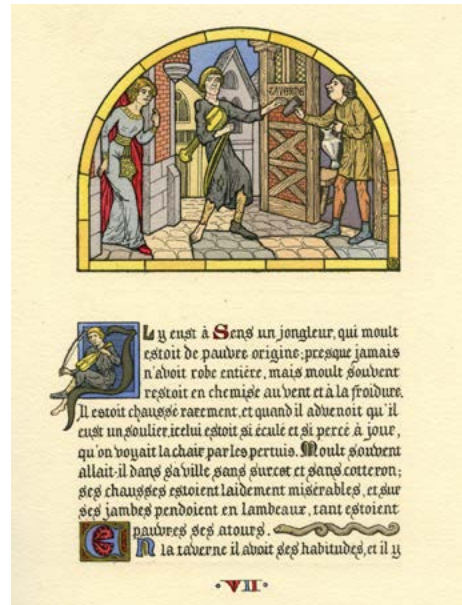 TAVERNE
IL y eust à Sens un jongleur, qui moult
estoit de pauvre origine; presque jamais
n'avoit robe entière, mais moult souvent
restoit en chemise au vent et à la froidure.
Il estoit chaussé rarement, et quand il advenoit qu'il
eust un soulier, icelui estoit si éculé et si percé à jour,
qu'on voyait la chair par les pertuis. Moult souvent
allait-il dans sa ville sans surcot et sans cotteron;
ses chausses estoient laidement misérables, et sur
ses jambes pendoient en lambeaux, tant estoient
pauvres ses atours.
En la taverne il avoit ses habitudes, et il y
VII